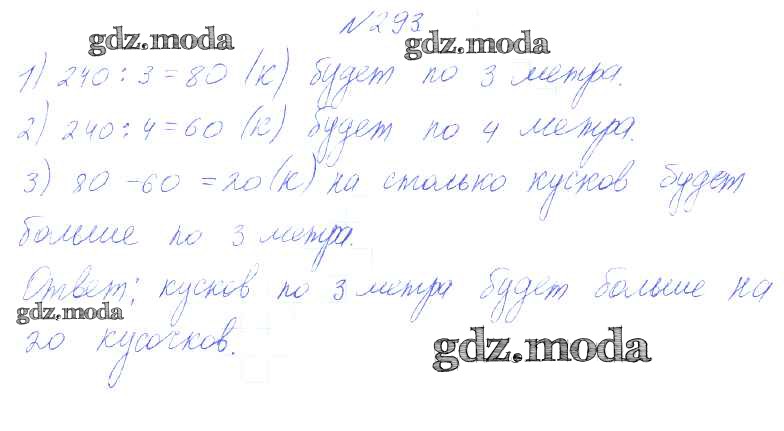 №293.
gdz.moda gdz.moda
1) 240 : 3 = 80 (к) будет по 3 метра.
2) 240 : 4 = 60 (к) будет по 4 метра.
3) 80 - 60 = 20 (к) на столько кусков будет
больше по 3 метра.
Ответ: кусков по 3 метра будет больше на
gdz.moda
20 кусочков.
gdz.moda